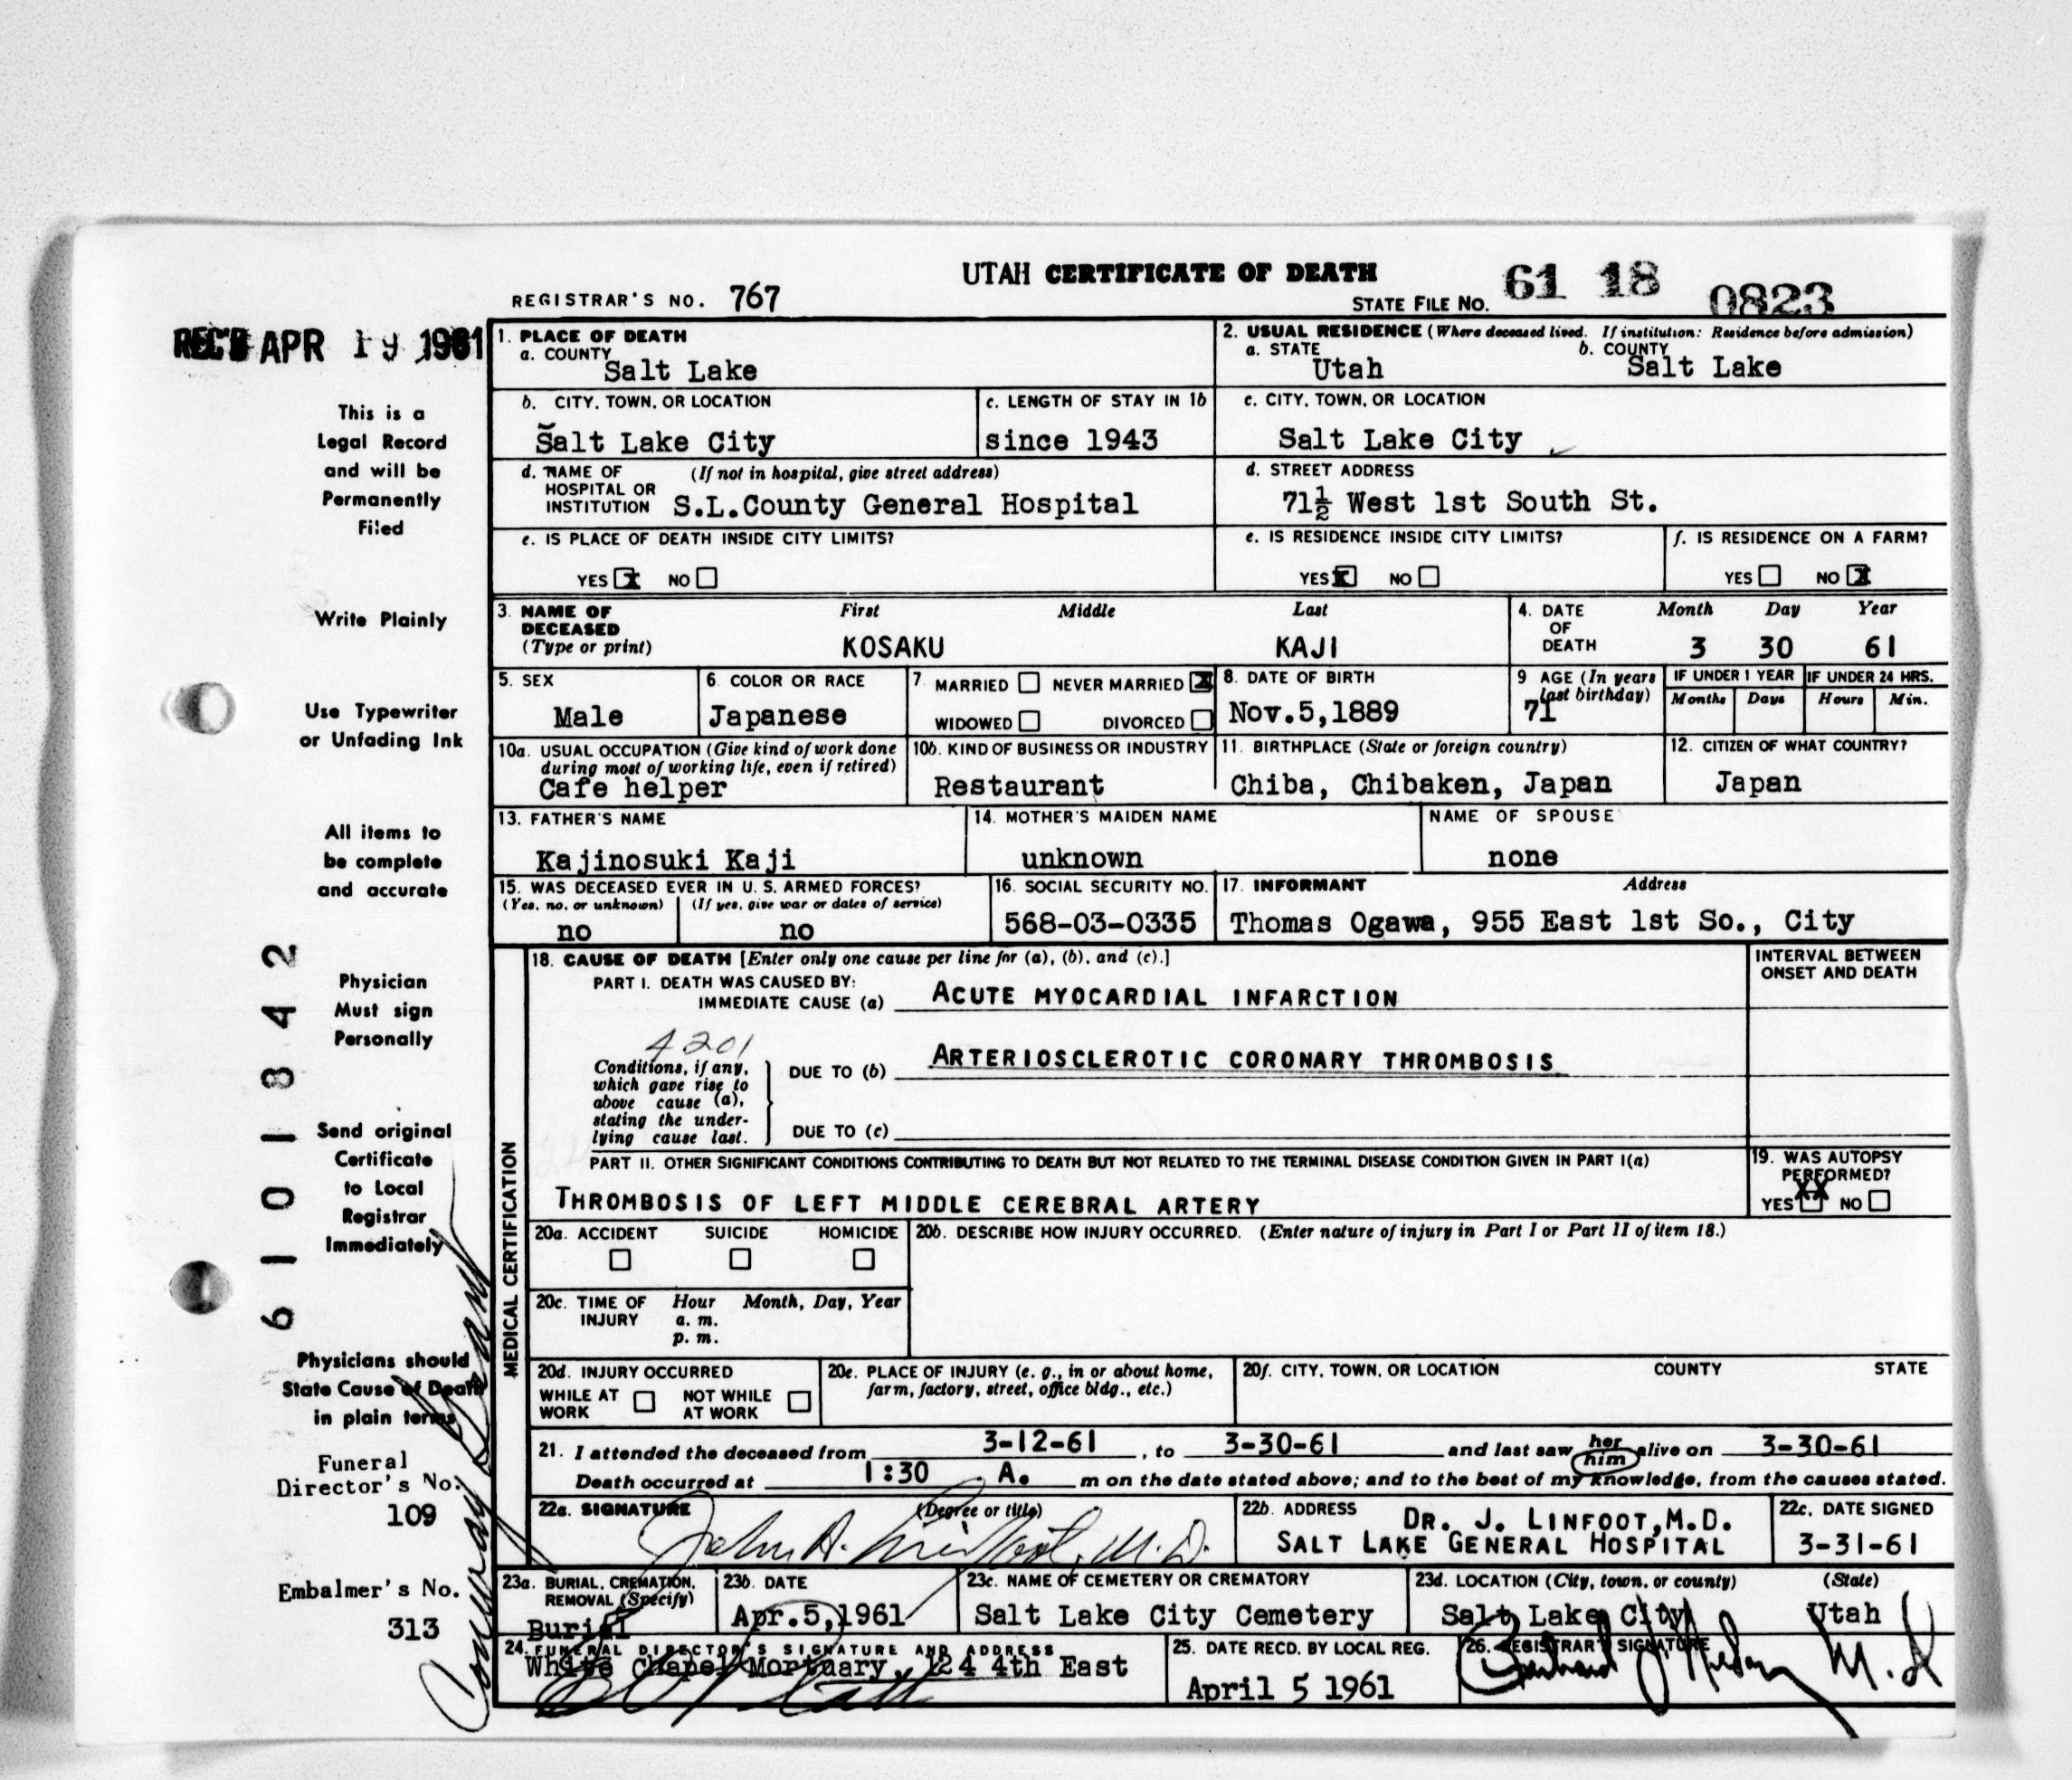 UTAH CERTIFICATE OF DEATH
REGISTRAR'S NO. 767
STATE FILE NO. 61 18 0823
REC'D APR 19 1961
This is a
Legal Record
and will be
Permanently
Filed
Write Plainly
Use Typewriter
or Unfading Ink
All items to
be complete
and accurate
Physician
Must sign
Personally
Send original
Certificate
to Local
Registrar
Immediately
Physicians should
State Cause of Death
in plain terms
Funeral
Director's No.
109
Embalmer's No.
313
61101842
1. PLACE OF DEATH
a. COUNTY
Salt Lake
2. USUAL RESIDENCE (Where deceased lived. If institution: Residence before admission)
a. STATE b. COUNTY
Utah Salt Lake
b. CITY, TOWN, OR LOCATION
Salt Lake City
c. LENGTH OF STAY IN 1b
since 1943
c. CITY, TOWN, OR LOCATION
Salt Lake City
d. NAME OF (If not in hospital, give street address)
HOSPITAL OR
INSTITUTION S.L.County General Hospital
d. STREET ADDRESS
71½ West 1st South St.
e. IS PLACE OF DEATH INSIDE CITY LIMITS?
YES X NO
e. IS RESIDENCE INSIDE CITY LIMITS?
YES X NO
f. IS RESIDENCE ON A FARM?
YES NO X
3. NAME OF First Middle Last
DECEASED
(Type or print) KOSAKU KAJI
4. DATE Month Day Year
OF
DEATH 3 30 61
5. SEX
Male
6. COLOR OR RACE
Japanese
7. MARRIED NEVER MARRIED X
WIDOWED DIVORCED
8. DATE OF BIRTH
Nov.5,1889
9 AGE (In years
last birthday)
71
IF UNDER 1 YEAR IF UNDER 24 HRS.
Months Days Hours Min.
10a. USUAL OCCUPATION (Give kind of work done
during most of working life, even if retired)
Cafe helper
10b. KIND OF BUSINESS OR INDUSTRY
Restaurant
11. BIRTHPLACE (State or foreign country)
Chiba, Chibaken, Japan
12. CITIZEN OF WHAT COUNTRY?
Japan
13. FATHER'S NAME
Kajinosuki Kaji
14. MOTHER'S MAIDEN NAME
unknown
NAME OF SPOUSE
none
15. WAS DECEASED EVER IN U. S. ARMED FORCES?
(Yes, no, or unknown) (If yes, give war or dates of service)
no no
16. SOCIAL SECURITY NO.
568-03-0335
17. INFORMANT Address
Thomas Ogawa, 955 East 1st So., City
MEDICAL CERTIFICATION
18. CAUSE OF DEATH [Enter only one cause per line for (a), (b), and (c).]
INTERVAL BETWEEN
ONSET AND DEATH
PART I. DEATH WAS CAUSED BY:
IMMEDIATE CAUSE (a) ACUTE MYOCARDIAL INFARCTION
4201
Conditions, if any,
which gave rise to
above cause (a),
stating the under-
lying cause last.
DUE TO (b) ARTERIOSCLEROTIC CORONARY THROMBOSIS
DUE TO (c)
PART II. OTHER SIGNIFICANT CONDITIONS CONTRIBUTING TO DEATH BUT NOT RELATED TO THE TERMINAL DISEASE CONDITION GIVEN IN PART I(a)
THROMBOSIS OF LEFT MIDDLE CEREBRAL ARTERY
19. WAS AUTOPSY
PERFORMED?
YES XX NO
20a. ACCIDENT SUICIDE HOMICIDE
20b. DESCRIBE HOW INJURY OCCURRED. (Enter nature of injury in Part I or Part II of item 18.)
20c. TIME OF Hour Month, Day, Year
INJURY a. m.
p. m.
20d. INJURY OCCURRED
WHILE AT NOT WHILE
WORK AT WORK
20e. PLACE OF INJURY (e. g., in or about home,
farm, factory, street, office bldg., etc.)
20f. CITY, TOWN, OR LOCATION COUNTY STATE
21. I attended the deceased from 3-12-61, to 3-30-61 and last saw her him alive on 3-30-61
Death occurred at 1:30 A. m on the date stated above; and to the best of my knowledge, from the causes stated.
22a. SIGNATURE (Degree or title)
John A. Linfoot, M.D.
22b. ADDRESS DR. J. LINFOOT,M.D.
SALT LAKE GENERAL HOSPITAL
22c. DATE SIGNED
3-31-61
23a. BURIAL, CREMATION,
REMOVAL (Specify)
Burial
23b. DATE
Apr.5,1961
23c. NAME OF CEMETERY OR CREMATORY
Salt Lake City Cemetery
23d. LOCATION (City, town, or county) (State)
Salt Lake City Utah
24. FUNERAL DIRECTOR'S SIGNATURE AND ADDRESS
White Chapel Mortuary, 124 4th East
25. DATE RECD. BY LOCAL REG.
April 5 1961
26. REGISTRAR'S SIGNATURE